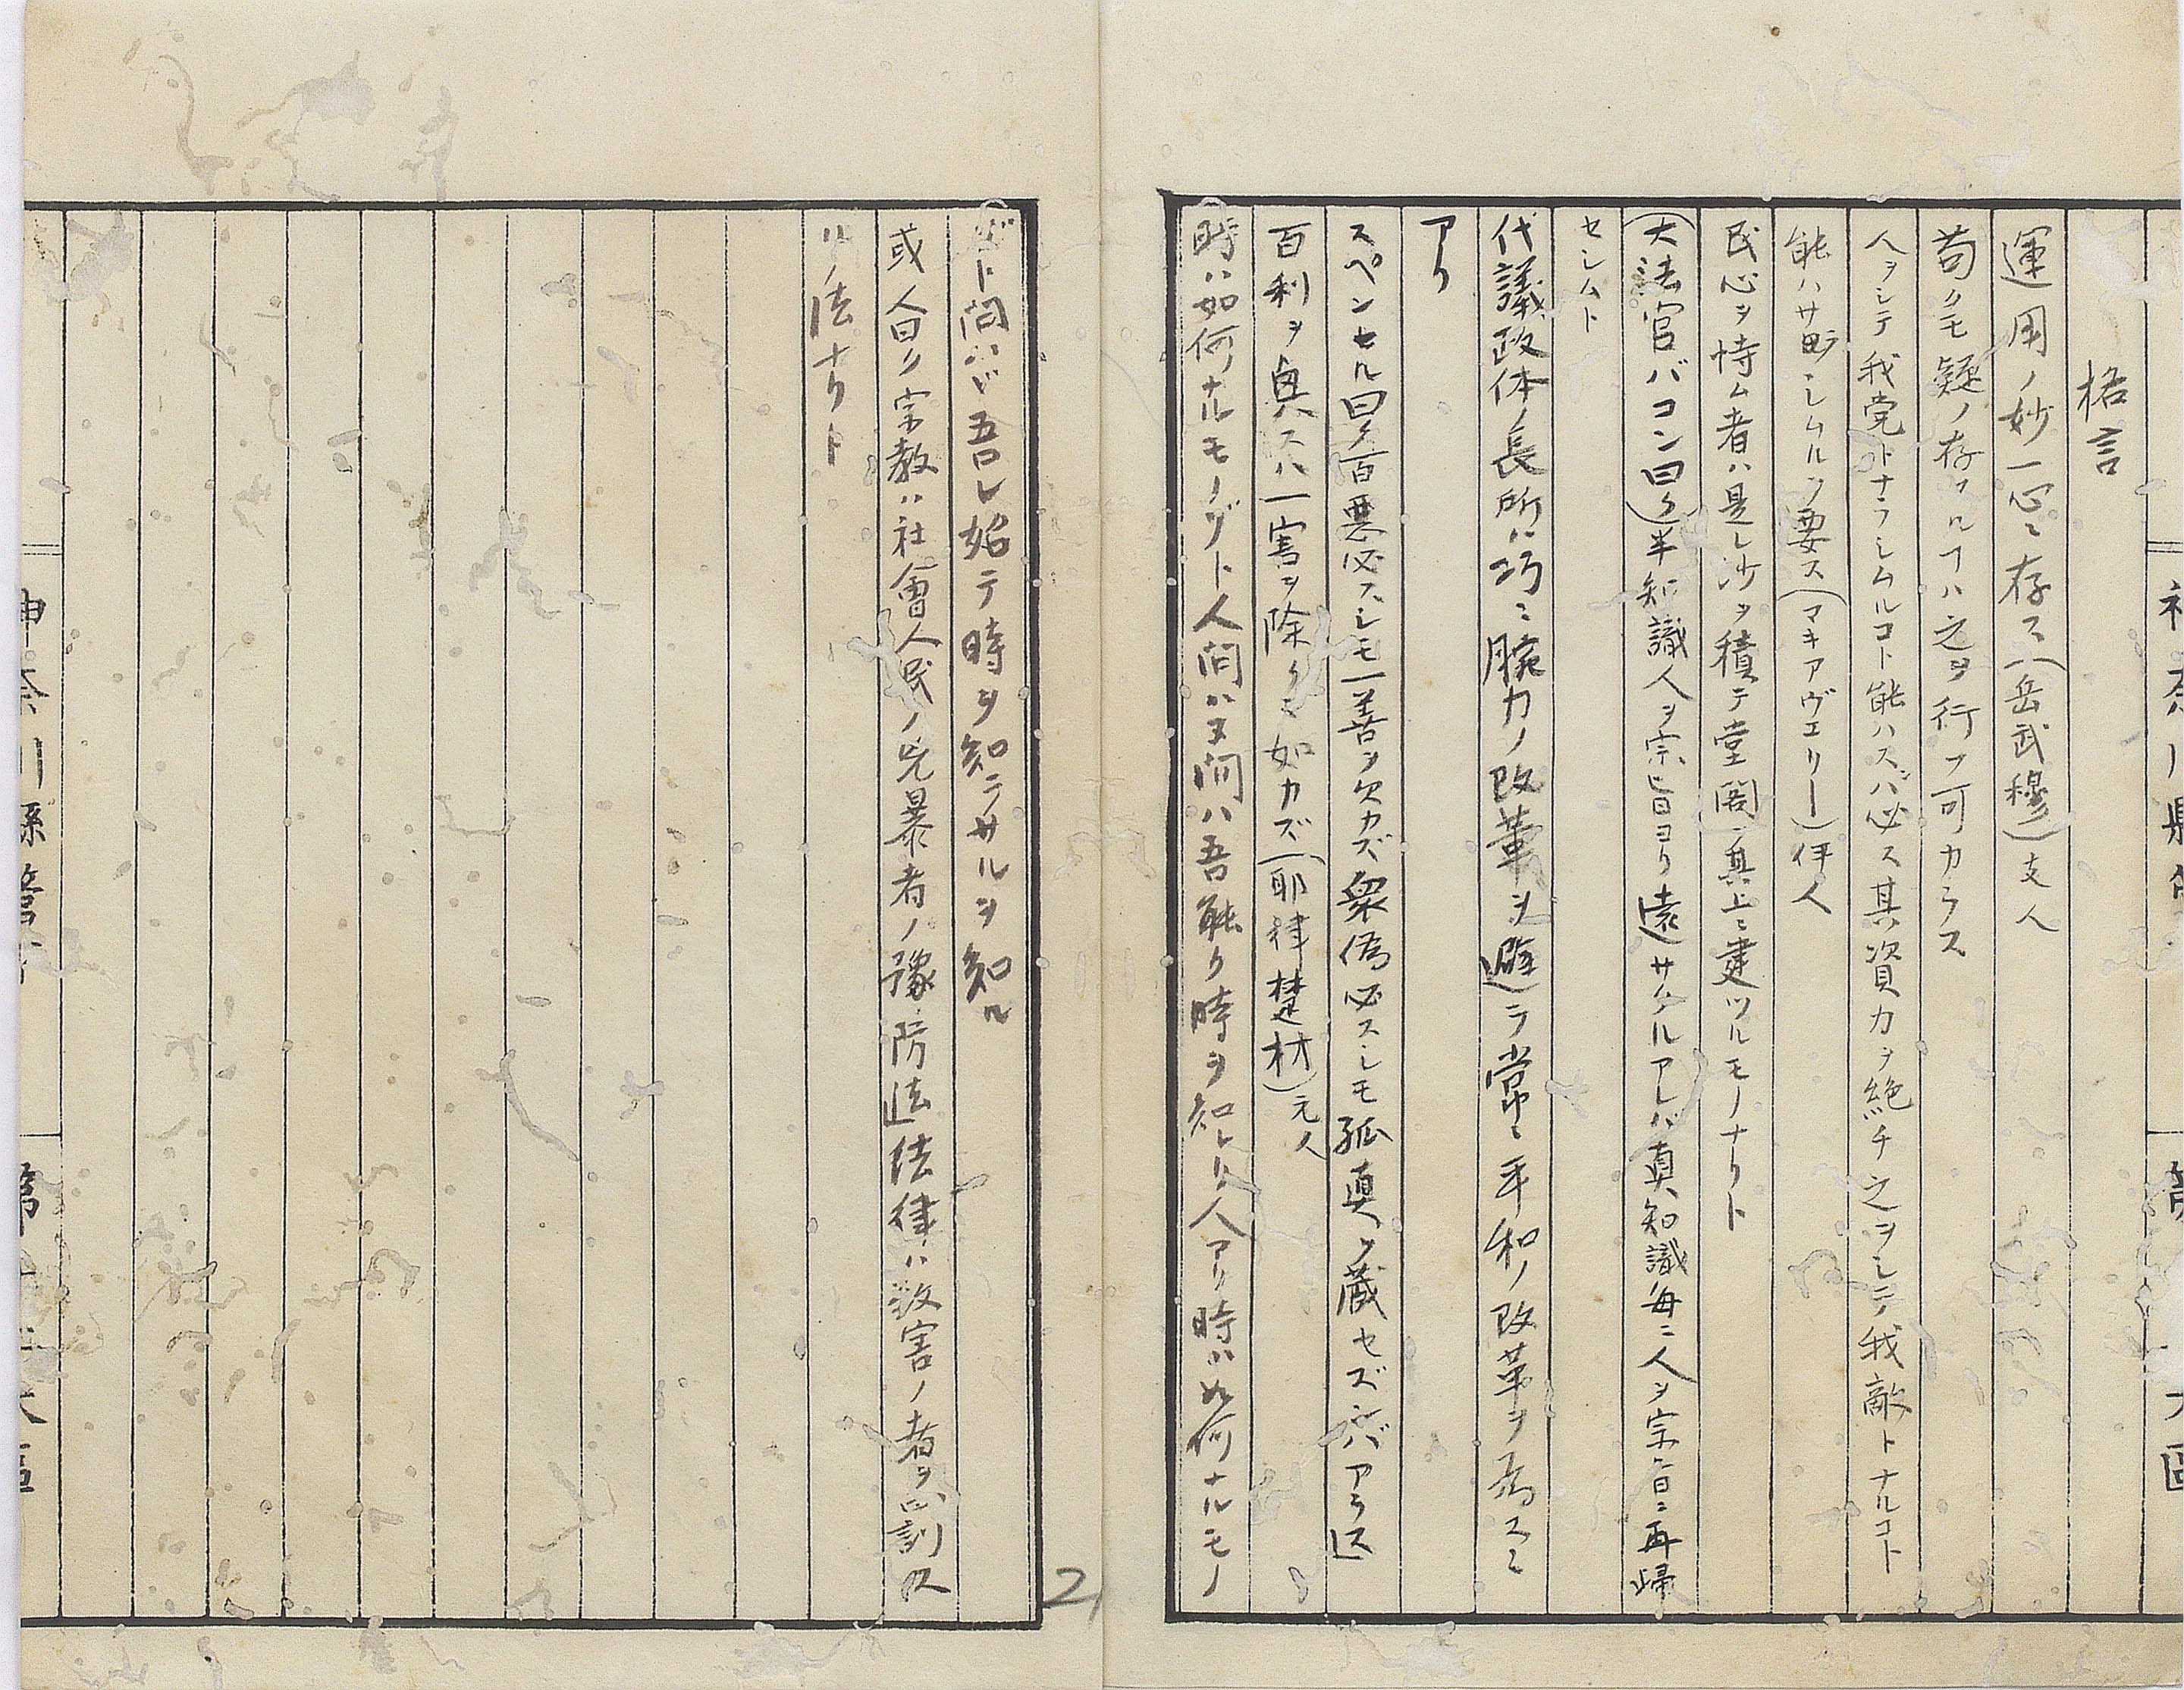 格言
運用ノ妙一心ニ存ス(岳武穆)支人
苟クモ疑ノ存スルヿハ之ヲ行フ可カラス
人ヲシテ我党トナラシムルコト能ハスバ必ス其資力ヲ絶チ之ヲシテ我敵トナルコト
能ハサラシムルヲ要ス(マキアヴエリー)伊人
民心ヲ恃ム者ハ是レ沙ヲ積テ堂閣ヲ其上ニ建ツルモノナリト
(大法官バコン曰ク)半知識人ヲ宗旨ヨリ遠サクルアレバ真知識毎ニ人ヲ宗旨ニ再帰
セシムト
代議政体ノ長所ハ巧ミニ腕力ノ改革ヲ避ラ常ニ平和ノ改革ヲ為スニ
アリ
スペンセル曰ク百悪必スシモ一善ヲ欠カズ衆偽必スシモ孤真ヲ蔵セズンバアラス
百利ヲ興スハ一害ヲ除クニ如カズ(耶律楚材)元人
時ハ如何ナルモノゾト人問ハヌ間ハ吾能ク時ヲ知レリ人アリ時ハ如何ナルモノ
ゾト問ハバ吾レ始テ時ヲ知ラサルヲ知ル
或人曰ク宗教ハ社會人民ノ兇暴者ノ豫防法法律ハ殺害ノ者ヲ罰ス
ル法ナリト
神奈川縣
第
大區
2